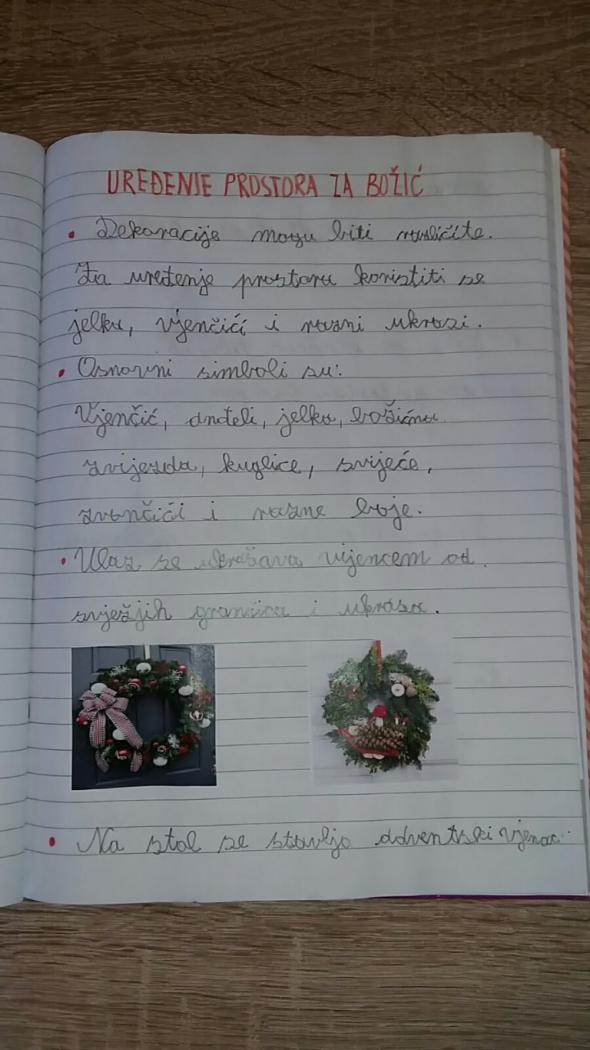 UREĐENJE PROSTORA ZA BOŽIĆ
• Dekoracije mogu biti različite.
Za uređenje prostora koristiti se
jelka, vjenčići i razni ukrasi.
• Osnovni simboli su:
Vjenčić, anđeli, jelka, božićna
zvijezda, kuglice, svijeće,
zvončići i razne boje.
• Ulaz se ukrašava vijencem od
svježjih grančica i ukrasa.
• Na stol se stavlja adventski vjenac.